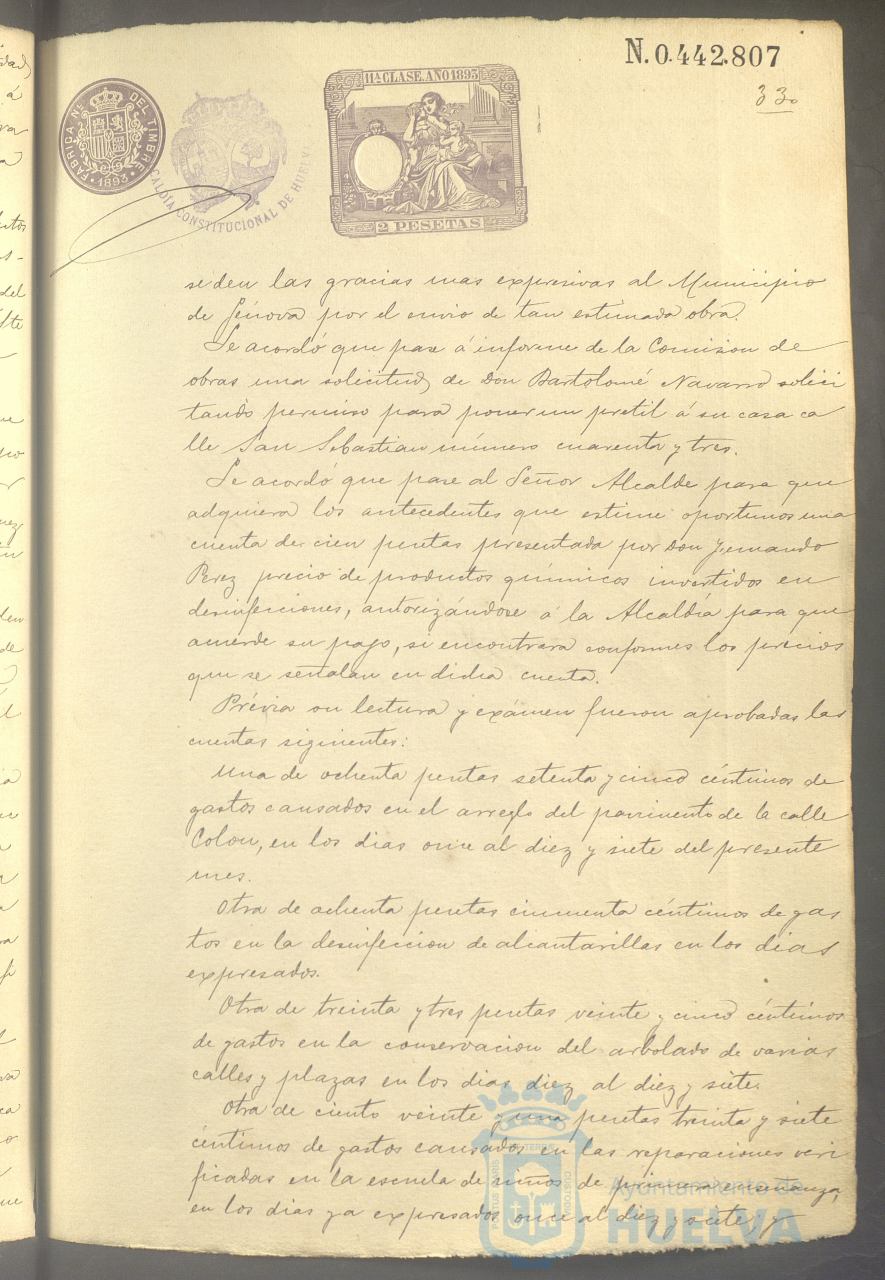 N. 0.442.807
33
FÁBRICA Nl. DEL TIMBRE
1893
ALCALDÍA CONSTITUCIONAL DE HUELVA
11ª CLASE. AÑO 1893
2 PESETAS
se den las gracias mas expresivas al Municipio
de Génova por el envio de tan estimada obra.
Se acordó que pase á informe de la Comision de
obras una solicitud de Don Bartolomé Navarro solici
tando permiso para poner un pretil á su casa ca
lle San Sebastian número cuarenta y tres.
Se acordó que pase al Señor Alcalde para que
adquiera los antecedentes que estime oportunos una
cuenta de cien pesetas presentada por Don Fernando
Perez precio de productos químicos invertidos en
desinfecciones, autorizándose á la Alcaldía para que
acuerde su pago, si encontrara conformes los precios
que se señalan en dicha cuenta.
Prévia su lectura y exámen fueron aprobadas las
cuentas siguientes:
Una de ochenta pesetas setenta y cinco céntimos de
gastos causados en el arreglo del pavimento de la calle
Colon, en los dias once al diez y siete del presente
mes.
Otra de ochenta pesetas cincuenta céntimos de gas
tos en la desinfeccion de alcantarillas en los dias
expresados.
Otra de treinta y tres pesetas veinte y cinco céntimos
de gastos en la conservacion del arbolado de varias
calles y plazas en los dias diez al diez y siete.
Otra de ciento veinte y una pesetas treinta y siete
céntimos de gastos causados en las reparaciones veri
ficadas en la escuela de niños de primera enseñanza,
en los dias ya expresados once al diez y siete, y
Ayuntamiento de
HUELVA